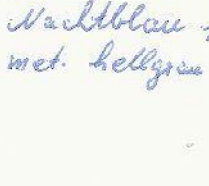 Nachtblau -
met. hellgrau